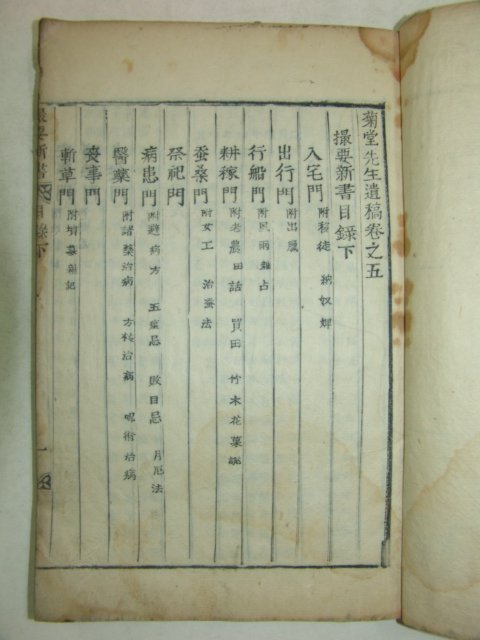 菊堂先生遺稿卷之五
撮要新書目録下
入宅門 附移徙 納奴婢
出行門 附出厩
行船門 附風雨雜占
耕稼門 附老農田話 買田 竹木花菓誕
蚕桑門 附女工 治蚕法
祭祀門
病患門 附避病方 玉葉忌 敗目忌 月厄法
醫藥門 附諸藥治病 方秘治病 呪術治病
喪事門
斬草門 附墳墓雜記
撮要新書 目録下 一